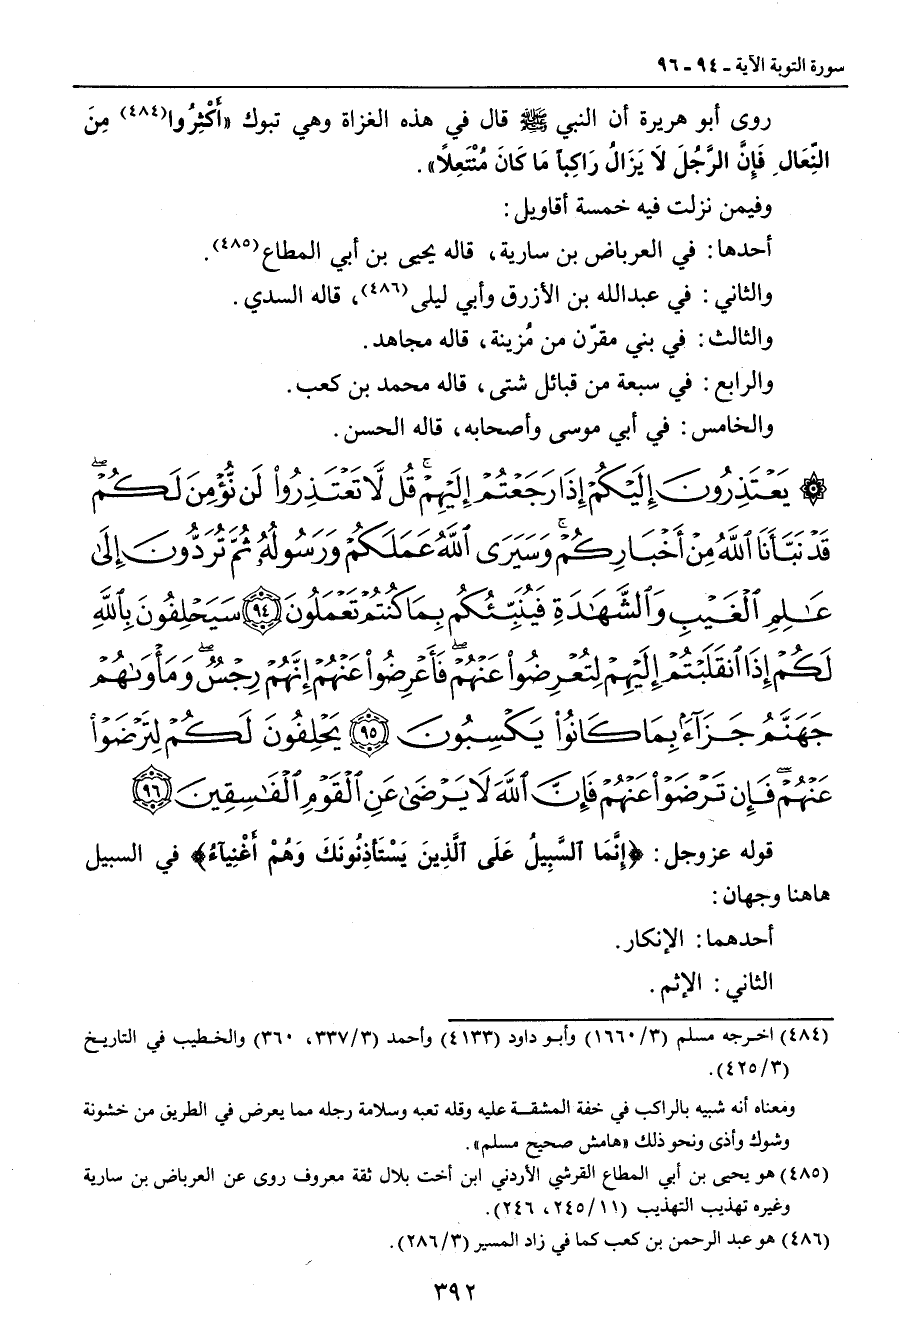 سورة التوبة الآية ـ ٩٤ ـ ٩٦
روى أبو هريرة أن النبي ﷺ قال في هذه الغزاة وهي تبوك «أَكْثِرُوا(٤٨٤) مِنَ
النِّعَالِ فَإِنَّ الرَّجُلَ لَا يَزَالُ رَاكِباً مَا كَانَ مُنْتَعِلاً».
وفيمن نزلت فيه خمسة أقاويل:
أحدها: في العرباض بن سارية، قاله يحيى بن أبي المطاع(٤٨٥).
والثاني: في عبدالله بن الأزرق وأبي ليلى(٤٨٦)، قاله السدي.
والثالث: في بني مقرّن من مُزينة، قاله مجاهد.
والرابع: في سبعة من قبائل شتى، قاله محمد بن كعب.
والخامس: في أبي موسى وأصحابه، قاله الحسن.
۞ يَعْتَذِرُونَ إِلَيْكُمْ إِذَا رَجَعْتُمْ إِلَيْهِمْ ۚ قُل لَّا تَعْتَذِرُوا۟ لَن نُّؤْمِنَ لَكُمْ ۖ
قَدْ نَبَّأَنَا ٱللَّهُ مِنْ أَخْبَارِكُمْ ۚ وَسَيَرَى ٱللَّهُ عَمَلَكُمْ وَرَسُولُهُۥ ثُمَّ تُرَدُّونَ إِلَىٰ
عَـٰلِمِ ٱلْغَيْبِ وَٱلشَّهَـٰدَةِ فَيُنَبِّئُكُم بِمَا كُنتُمْ تَعْمَلُونَ ﴿٩٤﴾ سَيَحْلِفُونَ بِٱللَّهِ
لَكُمْ إِذَا ٱنقَلَبْتُمْ إِلَيْهِمْ لِتُعْرِضُوا۟ عَنْهُمْ ۖ فَأَعْرِضُوا۟ عَنْهُمْ ۖ إِنَّهُمْ رِجْسٌ ۖ وَمَأْوَىٰهُمْ
جَهَنَّمُ جَزَآءًۢ بِمَا كَانُوا۟ يَكْسِبُونَ ﴿٩٥﴾ يَحْلِفُونَ لَكُمْ لِتَرْضَوْا۟
عَنْهُمْ ۖ فَإِن تَرْضَوْا۟ عَنْهُمْ فَإِنَّ ٱللَّهَ لَا يَرْضَىٰ عَنِ ٱلْقَوْمِ ٱلْفَـٰسِقِينَ ﴿٩٦﴾
قوله عزوجل: ﴿إِنَّمَا السَّبِيلُ عَلَى الَّذِينَ يَسْتَأْذِنُونَكَ وَهُمْ أَغْنِيآءُ﴾ في السبيل
هاهنا وجهان:
أحدهما: الإنكار.
الثاني: الإثم.
(٤٨٤) اخرجه مسلم (١٦٦٠/٣) وأبو داود (٤١٣٣) وأحمد (٣٣٧/٣، ٣٦٠) والخطيب في التاريخ
(٤٢٥/٣).
ومعناه أنه شبيه بالراكب في خفة المشقة عليه وقله تعبه وسلامة رجله مما يعرض في الطريق من خشونة
وشوك وأذى ونحو ذلك «هامش صحيح مسلم».
(٤٨٥) هو يحيى بن أبي المطاع القرشي الأردني ابن أخت بلال ثقة معروف روى عن العرباض بن سارية
وغيره تهذيب التهذيب (٢٤٥/١١، ٢٤٦).
(٤٨٦) هو عبد الرحمن بن كعب كما في زاد المسير (٢٨٦/٣).
٣٩٢